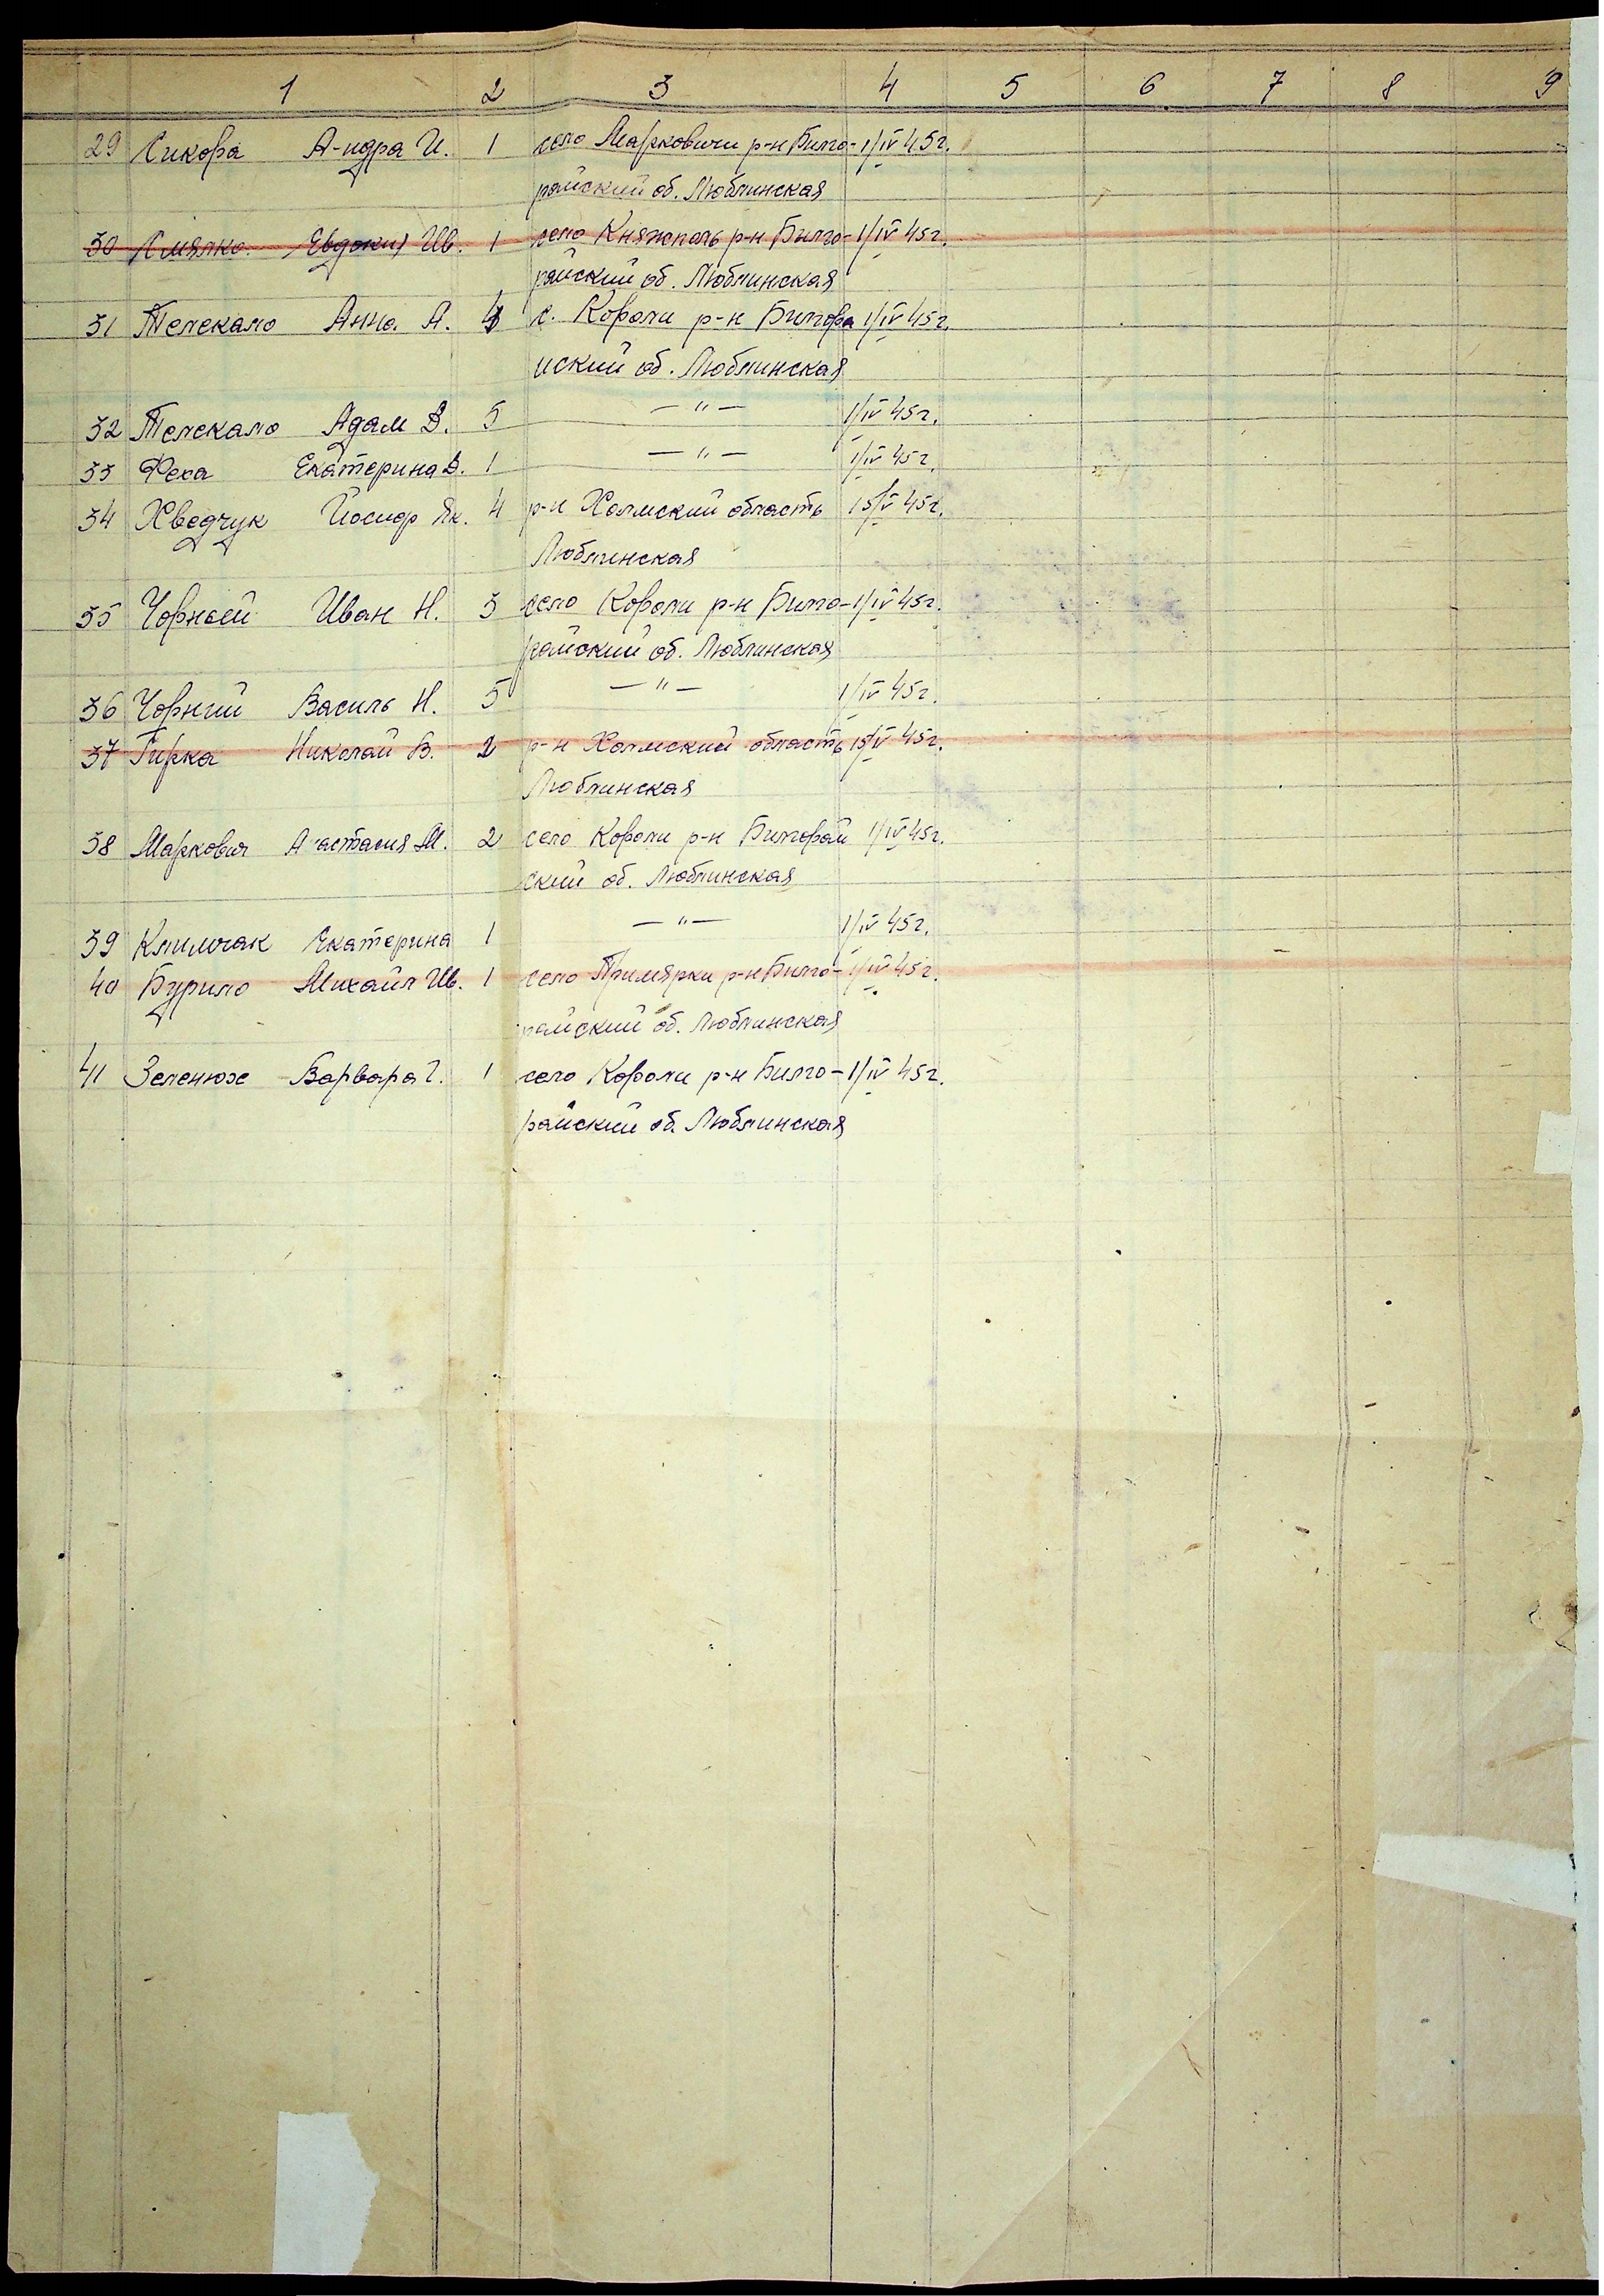 1 2 3 4 5 6 7 8 9
29 Сикора А-идра И. 1 село Марковичи р-н Билго- 1/IV 45г.
райский об. Люблинская
30 Ив. 1 село Княжполь р-н Билго- 1/IV 45г.
райский об. Люблинская
31 Телекало Анна А. с. Короли р-н Билгора 1/IV 45г.
йский об. Люблинская
32 Телекало Адам Д. 5 — " — 1/IV 45г.
33 Феха Екатерина Д. 1 — " — 1/IV 45г.
34 Хведчук Йосиф Як. 4 р-н Холмский область 15/V 45г.
Люблинская
35 Чорный Иван Н. 3 село Короли р-н Билго- 1/IV 45г.
райский об. Люблинская
36 Чорний Василь Н. 5 — " — 1/IV 45г.
37 Гирка Николай В. 2 р-н Холмский область 15/V 45г.
Люблинская
38 Маркович А астасия М. 2 село Короли р-н Билгорай 1/IV 45г.
ский об. Люблинская
39 Климчак Екатерина 1 — " — 1/IV 45г.
40 Бурило Михайл Ив. 1 село р-н Билго- 1/IV 45г.
райский об. Люблинская
41 Зеленюх Варвара Г. 1 село Короли р-н Билго- 1/IV 45г.
райский об. Люблинская